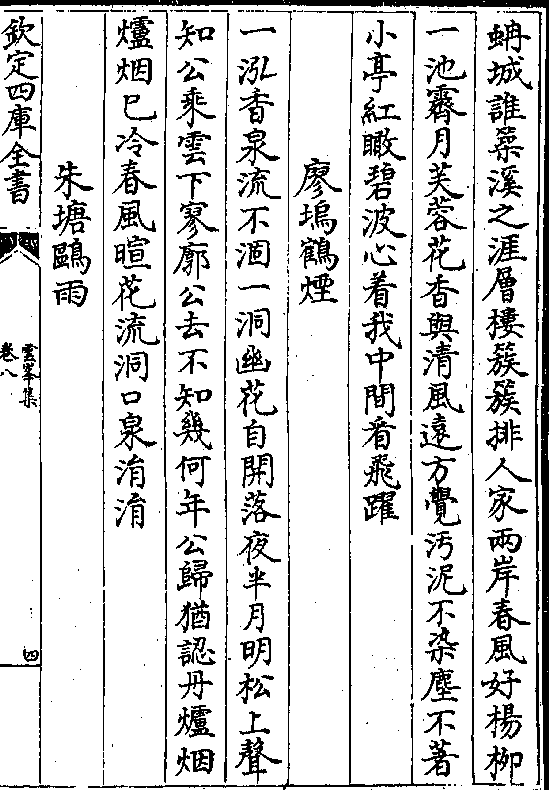 蚺城誰築溪之涯層樓簇簇排人家兩岸春風好楊柳
一池霽月芙蓉花香與清風遠方覺汚泥不染塵不著
小亭紅瞰碧波心着我中間看飛躍
廖塢鶴煙
一泓香泉流不涸一洞幽花自開落夜半月明松上聲
知公乘雲下寥廓公去不知幾何年公歸猶認丹爐烟
爐烟已冷春風暄花流洞口泉涓涓
朱塘鷗雨
欽定四庫全書
雲峯集
卷八
四